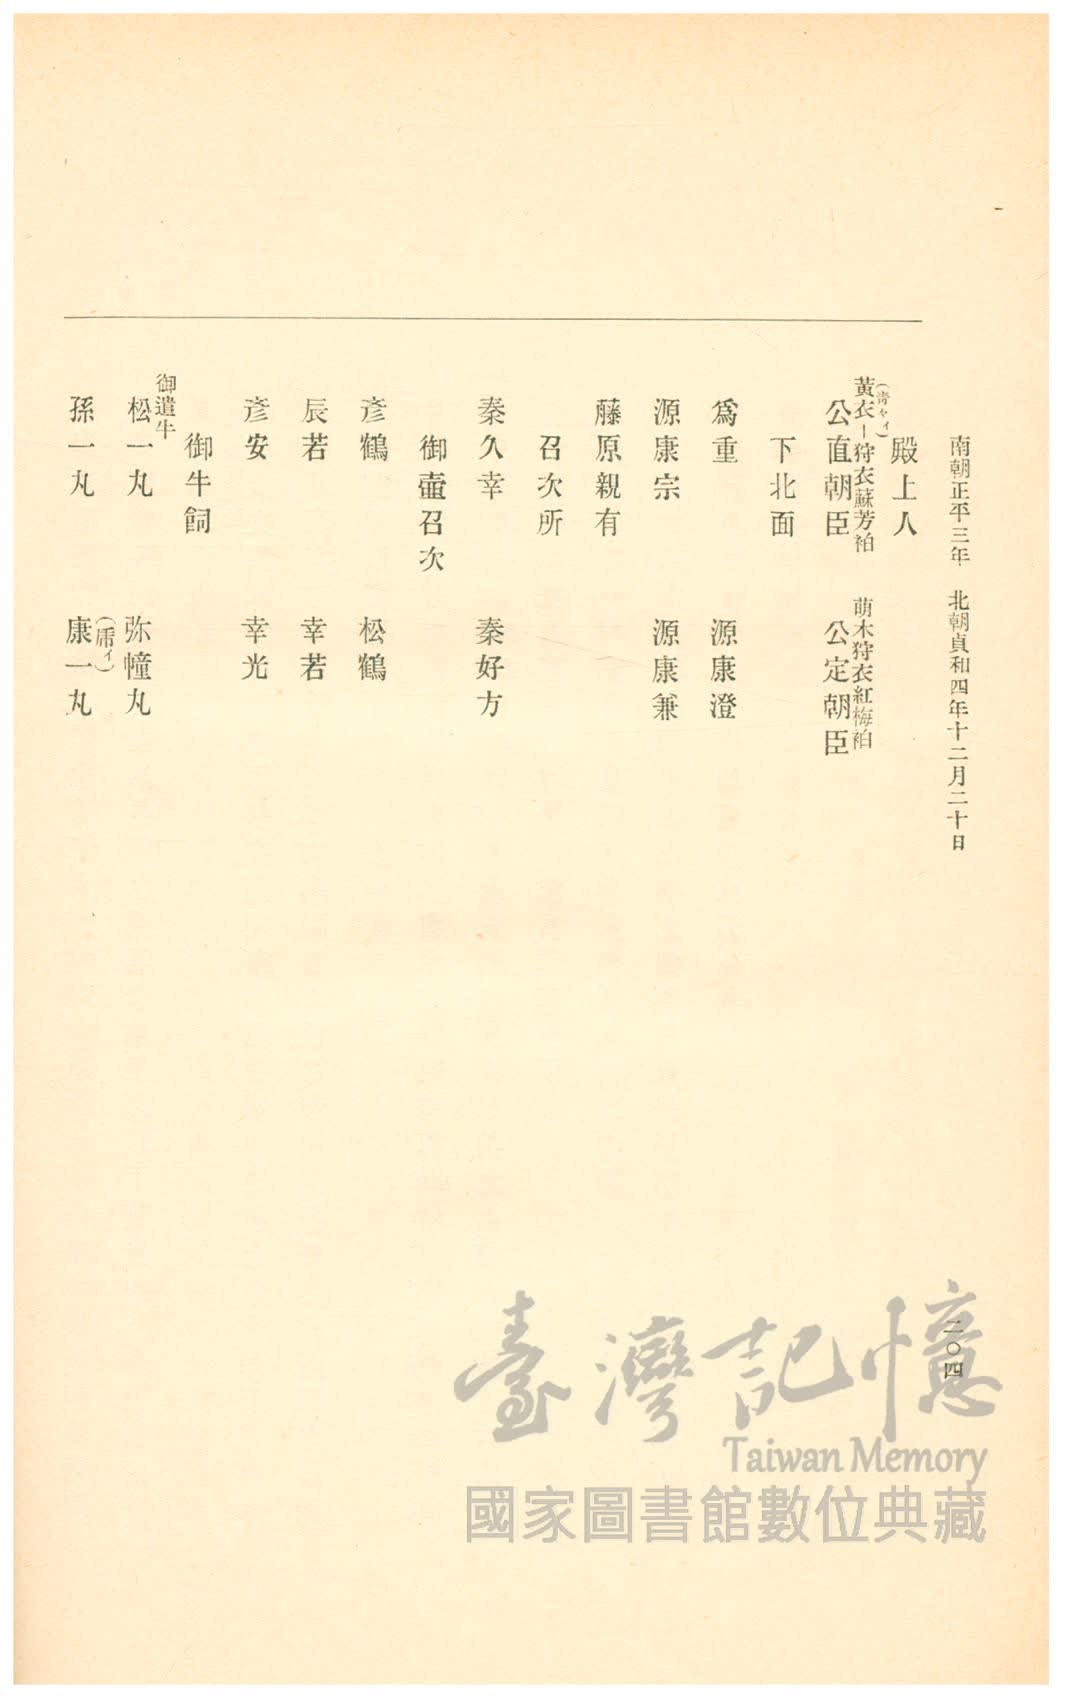 南朝正平三年　北朝貞和四年十二月二十日
二〇四
殿上人
(青ヤイ)
黃衣ー狩衣蘇芳袙　萌木狩衣紅梅袙
公直朝臣　公定朝臣
下北面
爲重　源康澄
源康宗　源康兼
藤原親有
召次所
秦久幸　秦好方
御壺召次
彥鶴　松鶴
辰若　幸若
彥安　幸光
御牛飼
御遣牛
松一丸　弥幢丸
(イ)
孫一丸　康一丸
臺灣記憶
Taiwan Memory
國家圖書館數位典藏